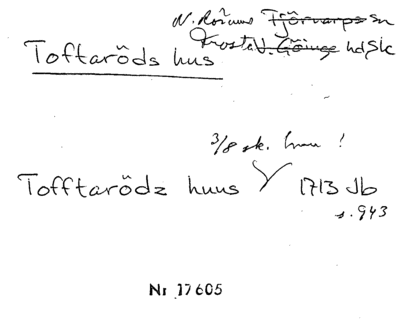 N. Rörums Fjörvarps sn
Frosta V. Göinge hd Sk
Toftaröds hus
3/8 sk.
Tofftarödz huus 1713 Jb
s. 943
Nr 17605